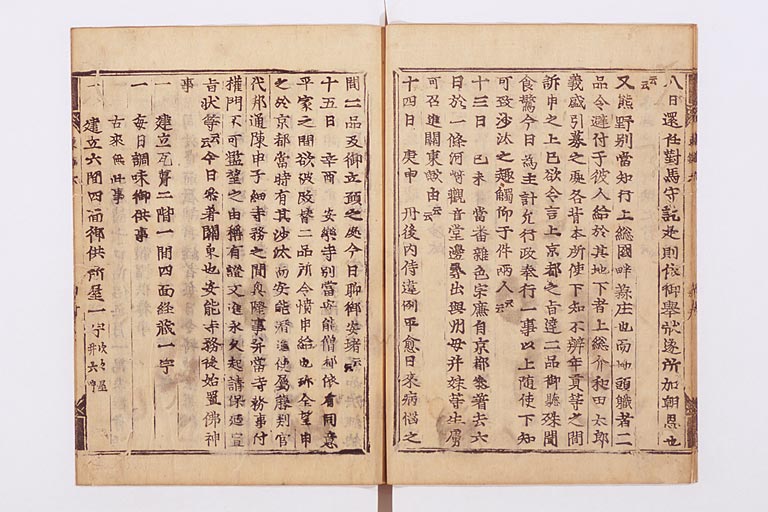 八日還任對馬守訖是則依御擧状遂所加朝恩也
云云
又熊野別當知行上総國畔蒜庄也而地頭職者二
品令避付于彼人給於其地下者上総介和田太郎
義盛引募之處各背本所使下知不辨年貢等之間
訴申之上已欲令言上京都之旨達二品御聴殊聞
食驚今日爲主計允行政奉行一事以上随使下知
可致沙汰之趣觸仰于件兩人云云
十三日 己未 當番雜色宗廉自京都參著去六
日於一條河崎觀音堂邊尋出與州母并妹等生虜
可召進關東歟由云云
十四日 庚申 丹後内侍違例平愈日來病惱之
間二品及御立願之處今日聊御安堵云云
十五日 辛酉 安樂寺別當安能僧都依有同意
平家之聞欲被改替二品所令憤申給也所全望申
之於京都當時有其沙汰而安能潜進使属藤判官
代邦通陳申子細寺務之間興隆事等當寺務事付
權門不可濫望之由構有證文進永久起請保延宣
旨状等云云今日參著關東也安能寺務後始置佛神
事
一 建立瓦葺二階一間四面経蔵一宇
一 毎日調味御供事
古來無此事
一 建立六間四面御供所屋一宇